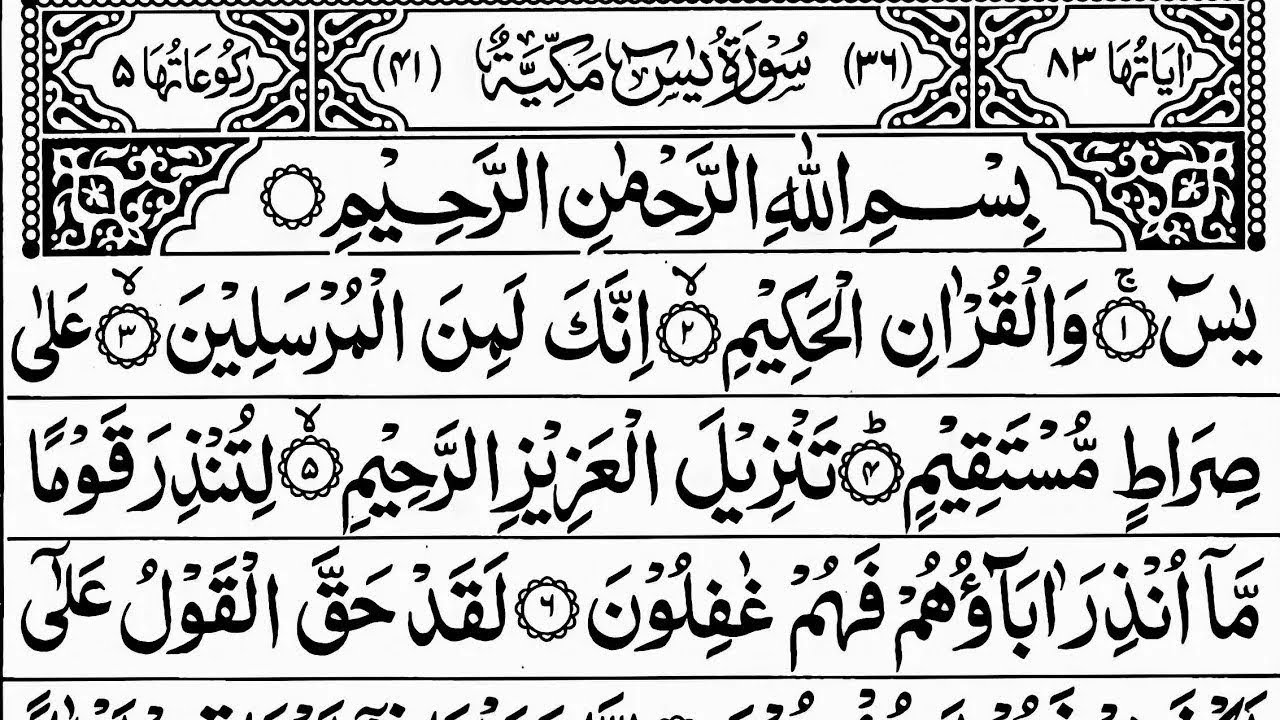 اٰيَاتُهَا ٨٣ (٣٦) سُوْرَةُ يٰسٓ مَكِّيَّةٌ (٤١) رُكُوْعَاتُهَا ٥
بِسْمِ اللّٰهِ الرَّحْمٰنِ الرَّحِيْمِ
يٰسٓ ۚ‏ ﴿۱﴾ وَالْقُرْاٰنِ الْحَكِيْمِ ۙ‏ ﴿۲﴾ اِنَّكَ لَمِنَ الْمُرْسَلِيْنَ ۙ‏ ﴿۳﴾ عَلٰى
صِرَاطٍ مُّسْتَقِيْمٍ ؕ‏ ﴿۴﴾ تَنْزِيْلَ الْعَزِيْزِ الرَّحِيْمِ ۙ‏ ﴿۵﴾ لِتُنْذِرَ قَوْمًا
مَّاۤ اُنْذِرَ اٰبَآؤُهُمْ فَهُمْ غٰفِلُوْنَ ﴿۶﴾ لَقَدْ حَقَّ الْقَوْلُ عَلٰٓى